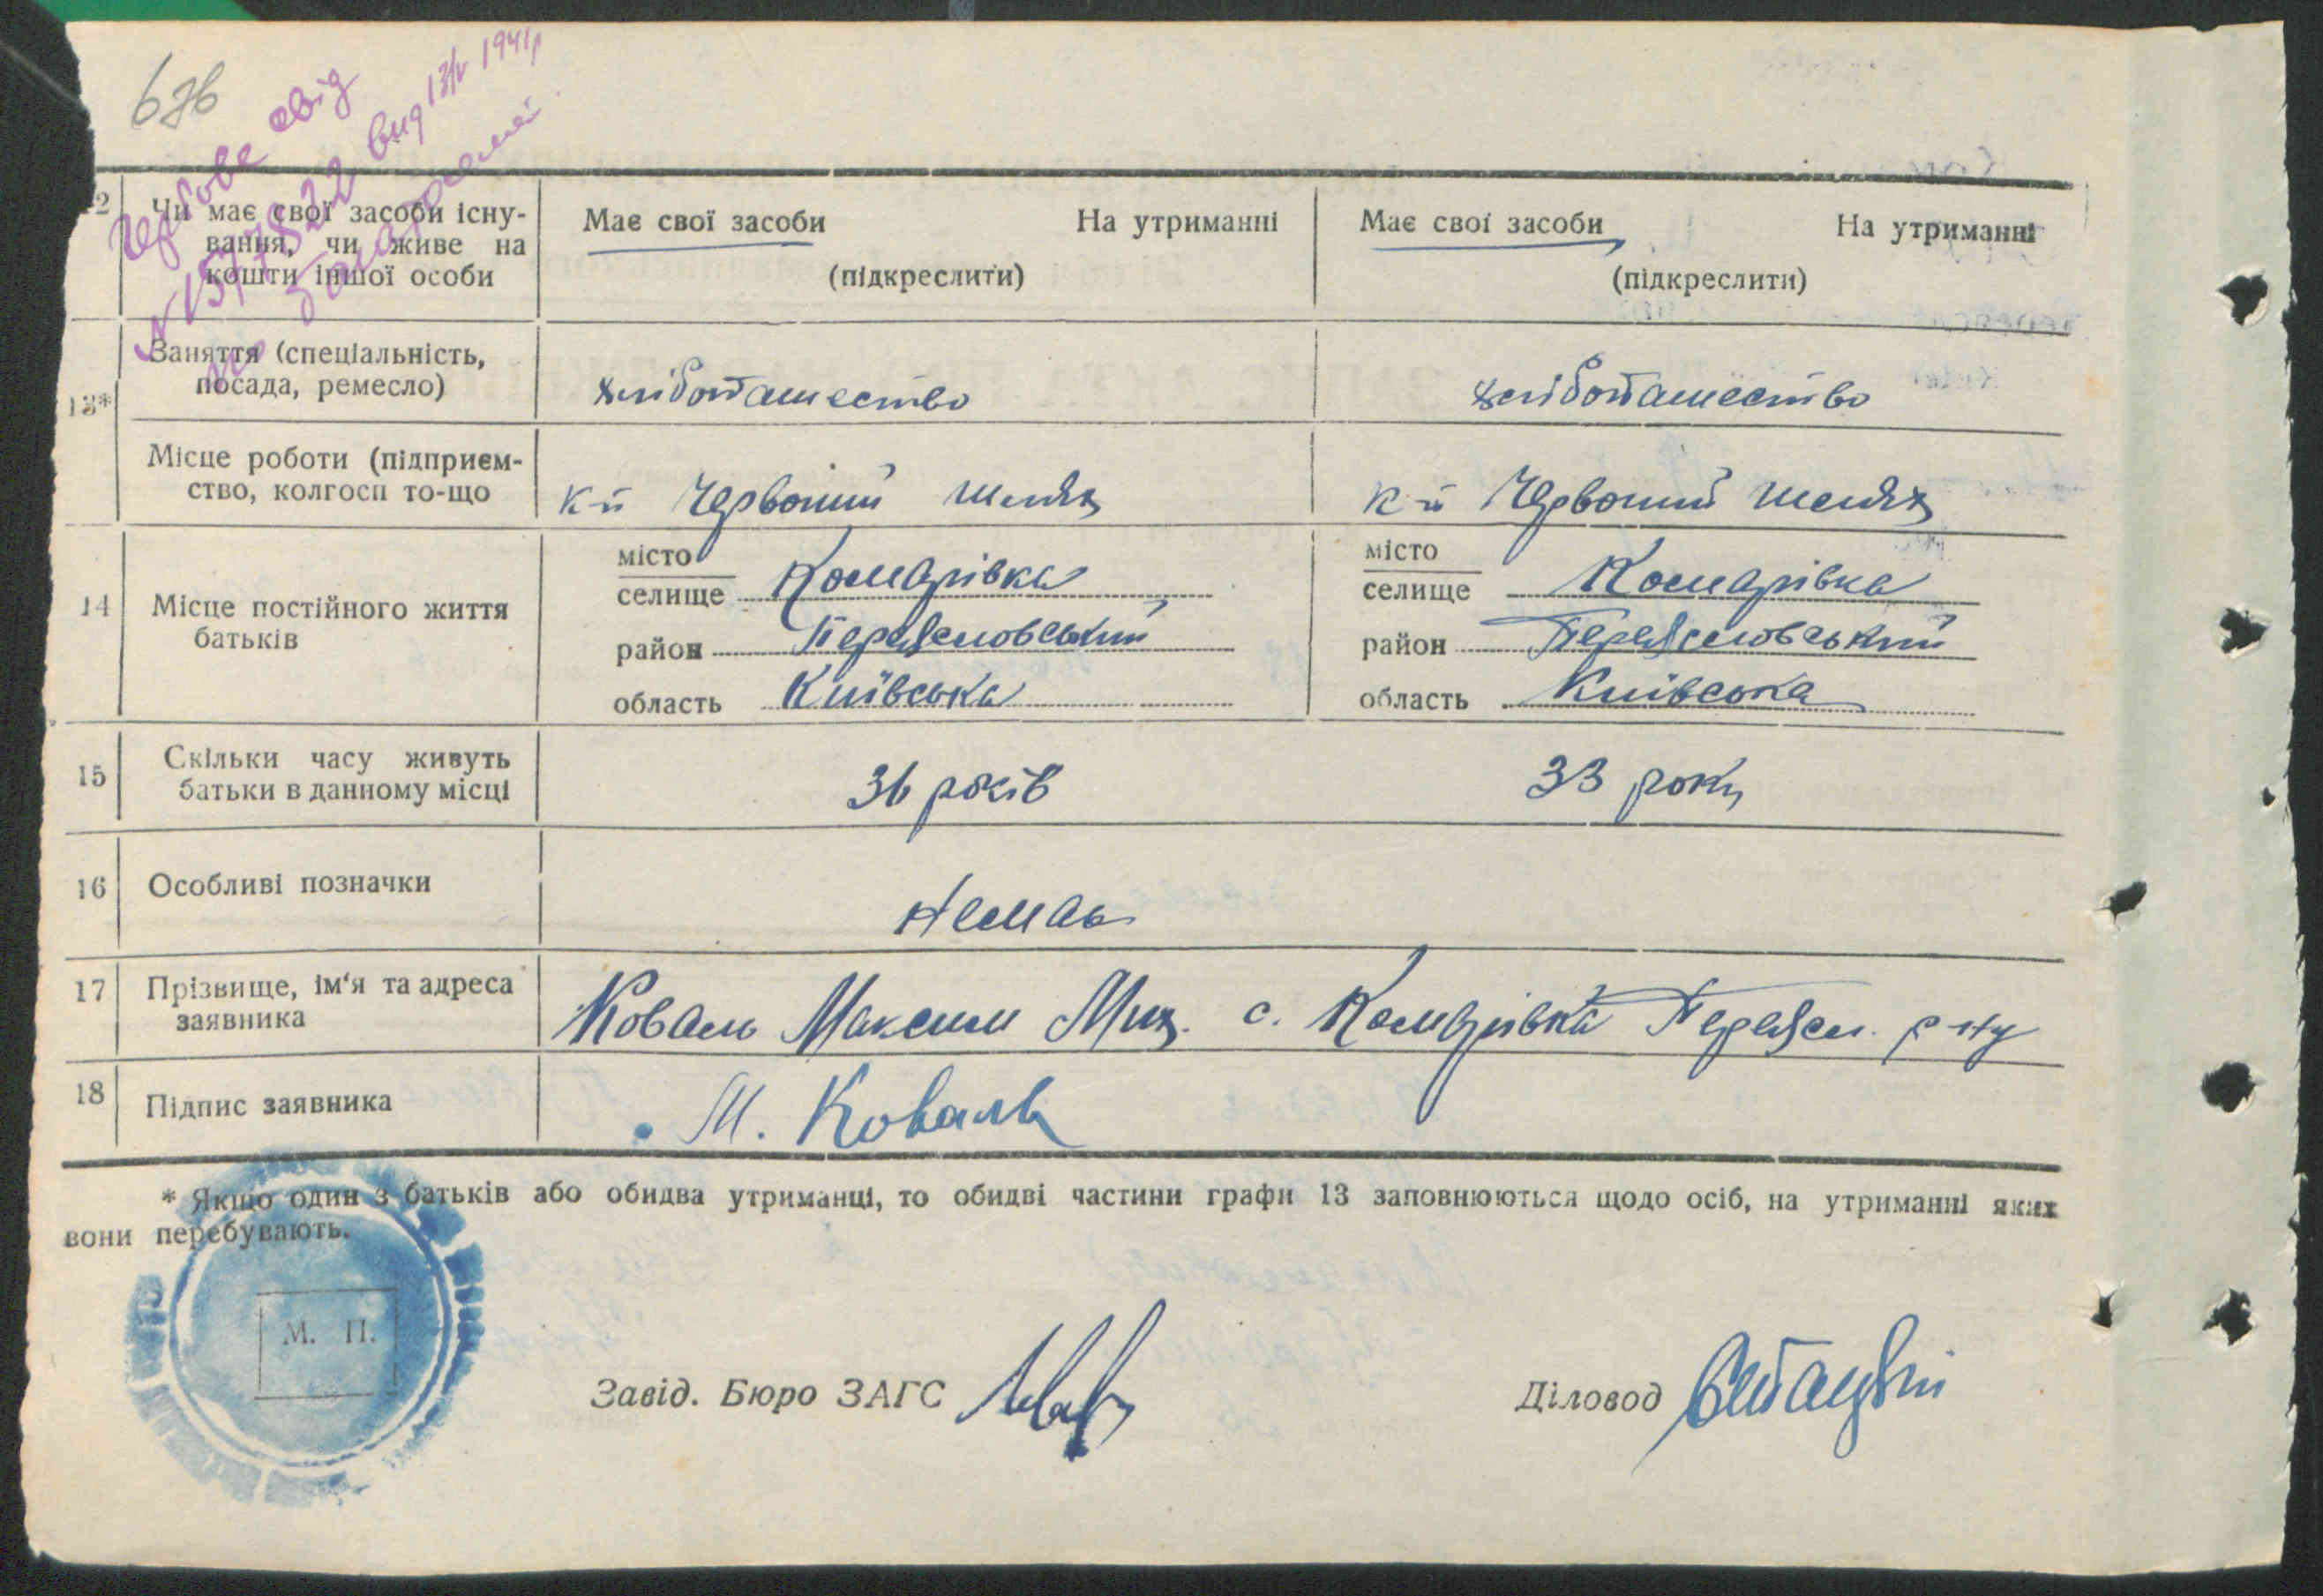 гербове свід
№ 157822 вид 13/V 1941р
12 Чи має свої засоби існу-
вання, чи живе на
кошти іншої особи
Має свої засоби На утриманні
(підкреслити)
Має свої засоби На утриманні
(підкреслити)
13* Заняття (спеціальність,
посада, ремесло)
хліборашество
хліборашество
Місце роботи (підприєм-
ство, колгосп то-що
к-п Червоний шлях
к-п Червоний шлях
14 Місце постійного життя
батьків
місто
селище Комарівка
район Переяславський
область Київська
місто
селище Комарівка
район Переяславський
область Київська
15 Скільки часу живуть
батьки в данному місці
36 років
33 роки
16 Особливі позначки
Немає
17 Прізвище, ім'я та адреса
заявника
Коваль Максим Мих. с. Комарівка Переясл. р-ну
18 Підпис заявника
М. Коваль
* Якщо один з батьків або обидва утриманці, то обидві частини графи 13 заповнюються щодо осіб, на утриманні яких
вони перебувають.
М. П.
Завід. Бюро ЗАГС
Діловод